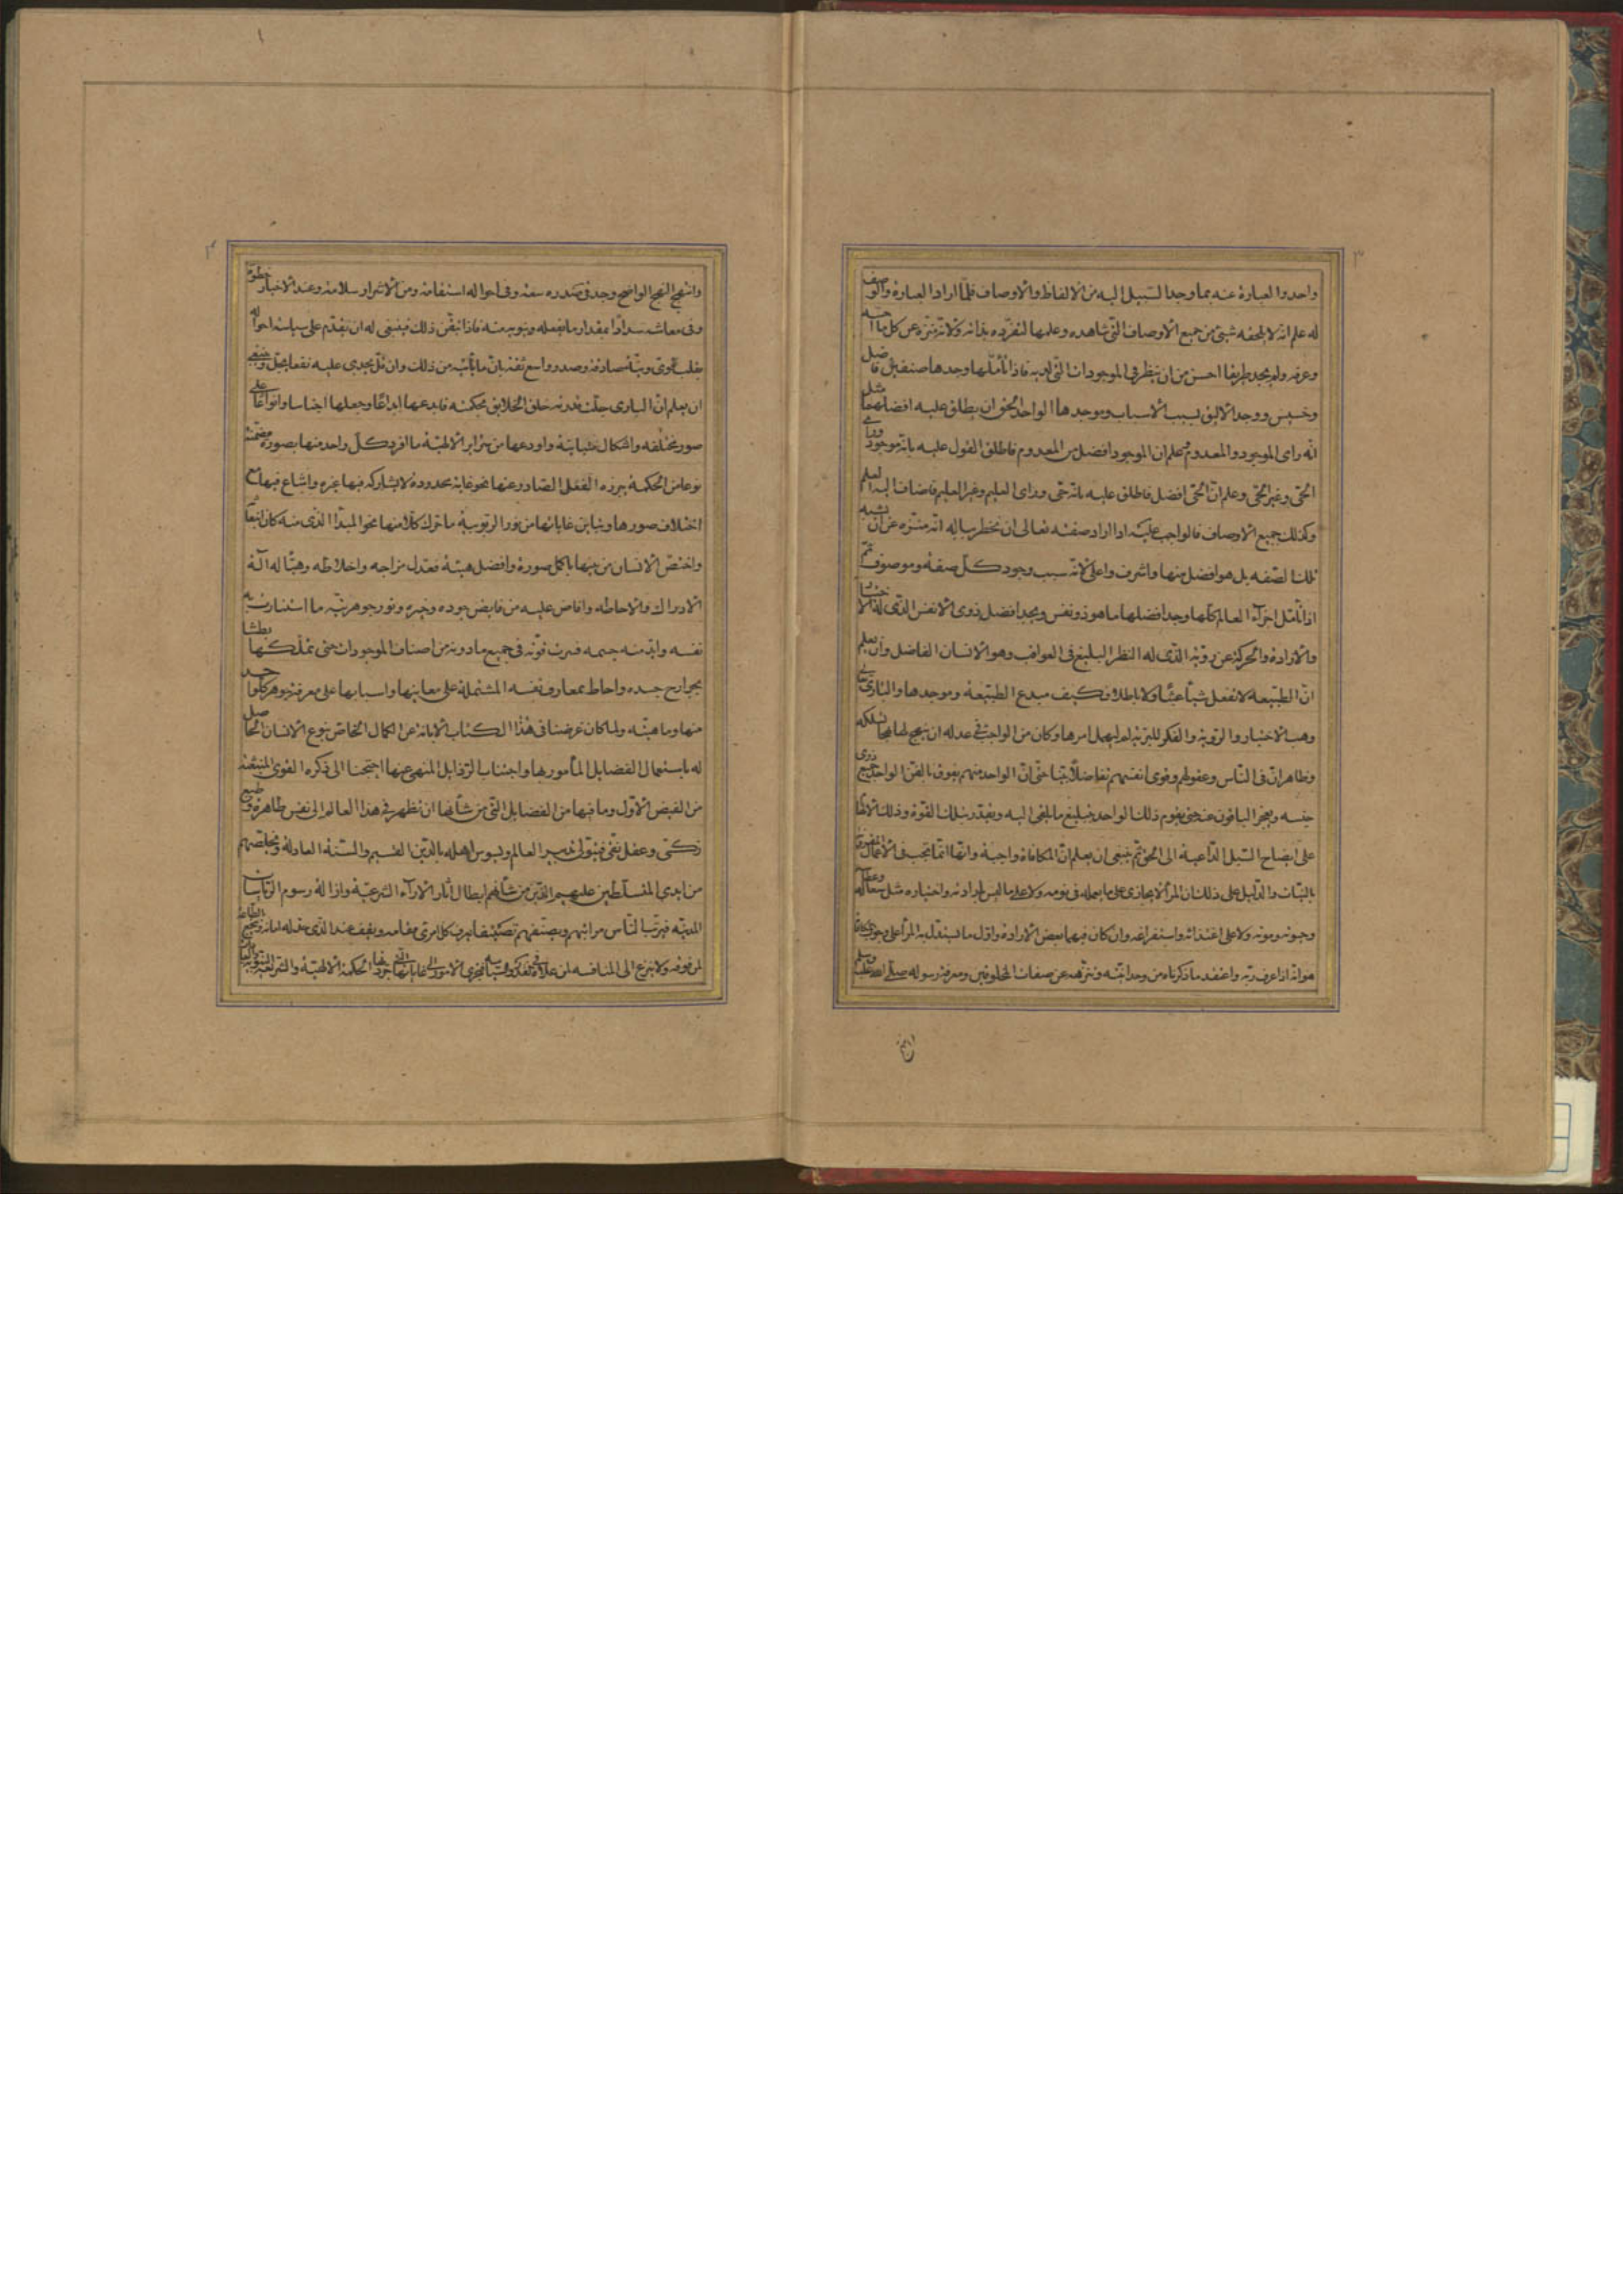 ٣
واحد والعبارة عنه بما وجد السبيل اليه من الالفاظ والاوصاف فلمّا اراد العبارة والوصف
له علم انه لا يلحقه شئ من جميع الاوصاف التى شاهده وعلمها لتفرّده بذاته ولانّه منزّه عن كل ما احسّه
وعرفه ولم يجد طريقا احسن من ان ينظر فى الموجودات التى لديه فاذا تأمّلها وجدها صنفين فاضل
وخسيس ووجد الاليق بسبب الاسباب وموجدها الواحد الحق ان يطلق عليه افضلهما مثل
انّه راى الموجود والمعدوم ثم علم ان الموجود افضل من المعدوم فاطلق القول عليه بانّه موجود وراى
الحّى وغير الحّى وعلم انّ الحّى افضل فاطلق عليه بانّه حّى وراى العليم وغير العليم فاضاف اليه العلم
وكذلك جميع الاوصاف فالواجب عليه اذا اراد صفته تعالى ان يخطر بباله انّه منزّه عن ان يشبه
تلك الصّفه بل هو افضل منها واشرف واعلى لانّه سبب وجود كلّ صفة وموصوف ثمّ
اذا تأمّل اجزاء العالم كلّها وجد افضلها ما هو ذو نفس ويجد افضل ذوى الانفس الذّى له الاختيار
والارادة والحركة عن رويّة الذّى له النظر البليغ فى العواقب وهو الانسان الفاضل وان يعلم
انّ الطبيعه لا تفعل شيأ عبثًا ولا باطلا فكيف مبدع الطبيعة وموجدها والبارى تعالى
وهب الاختيار والرّوية والفكر للبريّة لم ليهمل امرها وكان من الواجب فى عدله ان ينهج لها نهجا تسلكه
وظاهر ان فى النّاس وعقولهم وقوى انفسهم تفاضلًا بيّنا حتى انّ الواحد منهم يفوق بالفنّ الواحد جميع ذوى
جنسه ويعجز الباقون عنه حتى يقوم ذلك الواحد بتبليغ ما يلقى اليه ويقتدر بتلك القوّة وذلك الالهام
على ايضاح السّبل الدّاعية الى الحق ثم ينبغى ان يعلم انّ المكافاة واجبة وانّها انّما تجب فى الاعمال المقرونة
بالنيّات والدّليل على ذلك ان المرأ لا يجازى على ما يعمله فى نومه ولا على ما ليس بارادته واختياره مثل سعاله وعطاسه
وحيوته وموته ولا على اغتذائه واستفراغه وان كان فيهما بعض الارادة واوّل ما يستدلّ به المرأ على وجوب المكافاة
هو انّه اذا عرف ربّه واعتقد ما ذكرناه من وحدانيّته وتنزّهه عن صفات المخلوقين ومعرفة رسوله صلّى الله عليه وسلم
وانتهج
٤
وانتهج النهج الواضح وجد فى صدره سعة وفى احواله استقامة ومن الاشرار سلامة وعند الاخيار حظوة
وفى معاشه سدادًا بمقدار ما يفعله وينويه منه فاذا تيقّن ذلك فينبغى له ان يقدّم على سياسة احواله
بقلب قوّى ونيّة صادقة وصدر واسع ثقة بانّ ما يأتيه من ذلك وان قلّ يجدى عليه نفعا يجلّ وينبغى
ان يعلم انّ البارى جلّت قدرته خلق الخلايق بحكمته فابدعها ابداعًا وجعلها اجناسا وانواعًا على
صور مختلفه واشكال متباينة واودعها من سراير الالهيّة ما افرد كلّ واحد منها بصورة مضمّنة
نوعا من الحكمة يبرزه الفعل الصّادر عنها نحو غاية محدودة لا يشاركه فيها غيره واشاع فيها مع
اختلاف صورها وتباين غاياتها من نور الربّوبية ما حرّك كلّا منها نحو المبدّا الذّى منه كان انبعاثه
واختصّ الانسان من بينها باكمل صورة وافضل هيئة فعدّل مزاجه واخلاطه وهيّأ له آلة
الادراك والاحاطه وافاض عليه من فايض جوده وخيره ونور جوهريّته ما استنارت به
نفسه وايّد منه جسمه فسرت قوّته فى جميع ما دونه من اصناف الموجودات حتى تملّكها بطشا
بجوارح جسده واحاط بمعارف نفسه المشتملة على معاينها واسبابها على معرفة جوهر كلّ واحد
منها وماهيّته ولما كان غرضنا فى هذا الكتاب الابانة عن الكمال الخاصّ بنوع الانسان الحاصل
له باستعمال الفضايل المأمور بها واجتناب الرّذايل المنهى عنها احتجنا الى ذكره القوى المنبعثة
من الفيض الاوّل وما فيها من الفضايل التّى من شأنها ان تظهر فى هذا العالم الى نفس طاهرة وطبع
زكّى وعقل نقّى فيتولّى تدبير العالم ويسوس اهله بالدّين القيّم والسّنة العادلة ويخلّصهم
من ايدى المتسلّطين عليهم الذّين من شأنهم ابطال آثار الاراء الشرعيّة وازالة رسوم الرّياسات
المدنيّه فيرتّب النّاس مراتبهم ويصنّفهم تصنيفا يعرف كلّ امرئ مقامه ويقف عند الذّى جعل له
لمن فوقه ولا ينزع الى المنافسه لمن علاه الحكمة الالهيّة والشريعة النّبويّة